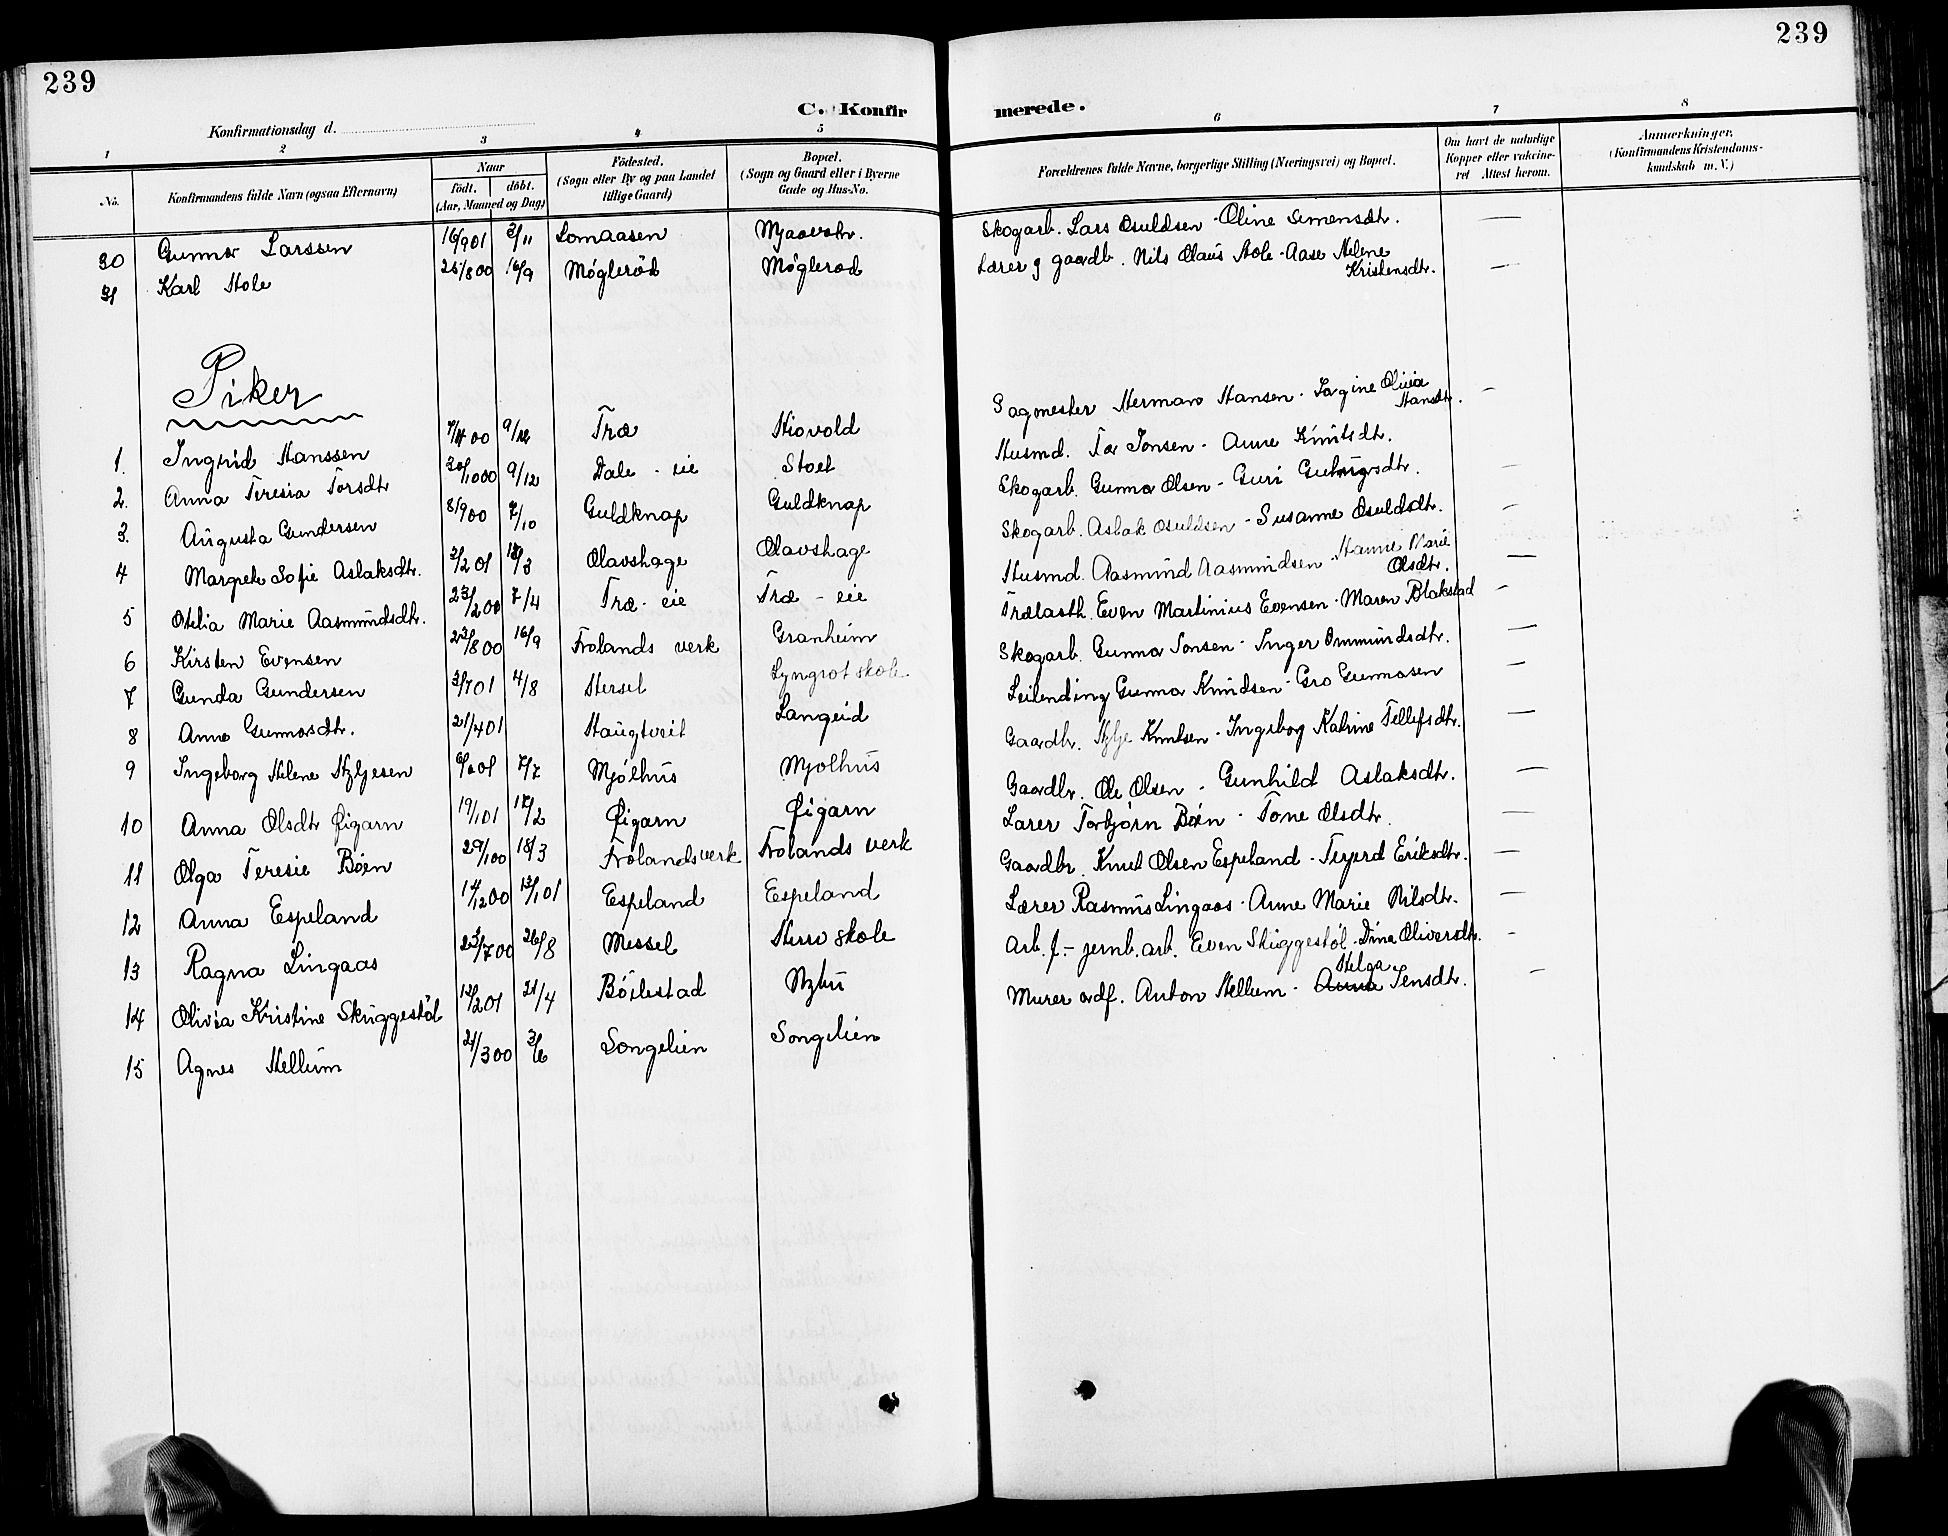 239
239
C. Konfir
merede.
Konfirmationsdag d.
1 2 3 4 5 6 7 8
No.
Konfirmandens fulde Navn (ogsaa Efternavn)
Naar
födt. döbt.
(Aar, Maaned og Dag)
Födested.
(Sogn eller By og paa Landet
tillige Gaard)
Bopæl.
(Sogn og Gaard eller i Byerne
Gade og Hus-No.
Forældrenes fulde Navne, borgerlige Stilling (Næringsvei) og Bopæl.
Om havt de naturlige
Kopper eller vakcine-
ret Attest herom.
Anmærkninger,
(Konfirmandens Kristendoms-
kundskab m. V.)
30 Gunnar Larssen 16/9 01 3/11 Lomaasen Skogarb. Lars Osuldsen - Oline Simensdtr. —
31 Karl Stole 25/8 00 16/9 Møglerød Møglerød Lærer g gaardb. Nils Olaus Stole - Aase Helene
Kristensdtr. —
Piker
1. Ingrid Hanssen 00 9/12 Træ Hiovold Sagmester Herman Hansen - Olivia
Hansdtr. —
2. Anna Teresia Torsdtr 30/10 00 9/12 Dale - eie Stoet Husmd. Tor Jonsen - Anne Knutsdtr.
3. Augusta Gundersen 8/9 00 7/10 Guldknap Guldknap Skogarb. Gunnar Olsen - Guri —
4 Margrete Sofie Aslaksdtr. 2/2 01 Olavshage Olavshage Skogarb. Aslak Osuldsen - Susanne Osuldsdtr. —
5 Otelia Marie Aasmundsdtr. 23/2 00 7/4 Træ - eie Træ - eie Husmd. Aasmund Aasmundsen - Hanne Marie
Olsdtr. —
6 Kirsten Evensen 23/8 00 16/9 Frolands verk Granheim Trælasth. Even Martinius Evensen - Maren Blakstad —
7 Gunda Gundersen 3/7 01 4/8 Hersel Lyngrot skole Skogarb. Gunnar Jonsen - Inger Ommundsdtr. —
8 Anne Gunnarsdtr. 21/4 01 Haugtveit Langeid Leilending Gunnar Knudsen - Gro Gunnarsen —
9 Ingeborg Helene Hyljesen 01 7/7 Mjølhus Mjølhus Gaardbr. Hylje Knutsen - Ingeborg Katrine Tellefsdtr. —
10 Anna Olsdtr Øigarn 19/1 01 17/2 Øigarn Øigarn Gaardbr. Ole Olsen - Gunhild Aslaksdtr. —
11 Olga Teresie Bøen 29/1 00 18/3 Frolandsverk Frolands verk Lærer Torbjørn Bøen - Tone Olsdtr. —
12 Anna Espeland 14/12 00 13/1 01 Espeland Espeland Gaardbr. Knut Olsen Espeland - Terjerd Eriksdtr. —
13 Ragna Lingaas 23/7 00 26/8 Messel Herre skole Lærer Rasmus Lingaas - Anne Marie Nilsdtr. —
14 Olivia Kristine Skuggestøl 12/2 01 21/4 Bøilestad Nybu Arb. f. - jernb. arb. Even Skuggestøl - Dina Oliversdtr. —
15 Agnes Hellum 21/3 00 3/6 Songelien Songelien Murer Anton Hellum - Anna Helga Jensdtr. —